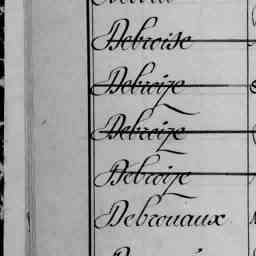 Debroise
Debroize
Debroize
Debroize
Debrouaux